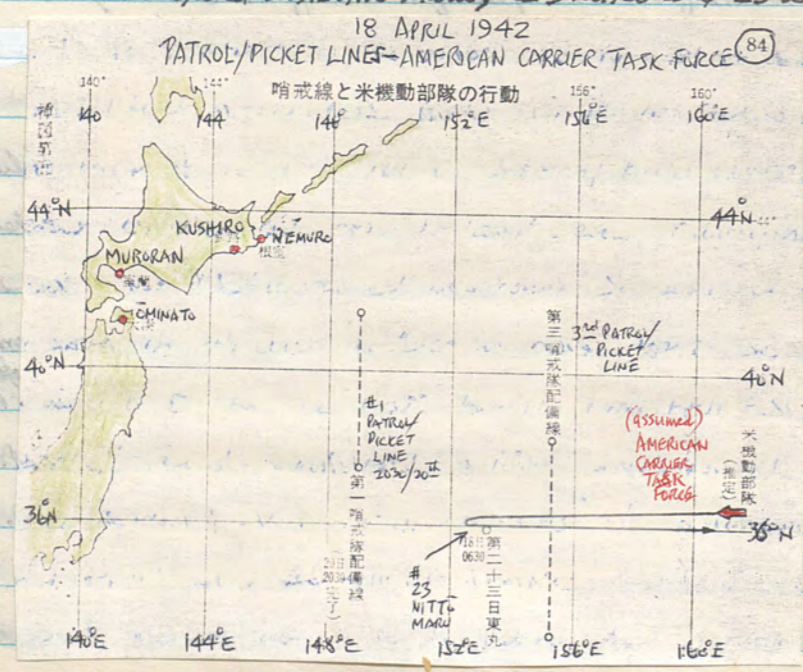 18 APRIL 1942
PATROL/PICKET LINES-AMERICAN CARRIER TASK FORCE
84
哨戒線と米機動部隊の行動
140°
144°
156°
160°
140
144
148
152°E
156°E
160°E
44°N
44°N
44°
KUSHIRO
NEMURO
根室
MURORAN
室蘭
OMINATO
40°N
40°N
第三哨戒隊配備線
3rd PATROL/
PICKET
LINE
#1
PATROL/
PICKET
LINE
2030/20th
第一哨戒隊配備線
(20日
2030完了)
(assumed)
AMERICAN
CARRIER
TASK
FORCE
米機動部隊
(推定)
36N
36°N
18日
0630
第二十三日東丸
#
23
NITTŌ
MARU
140°E
144°E
148°E
152°E
156°E
160°E